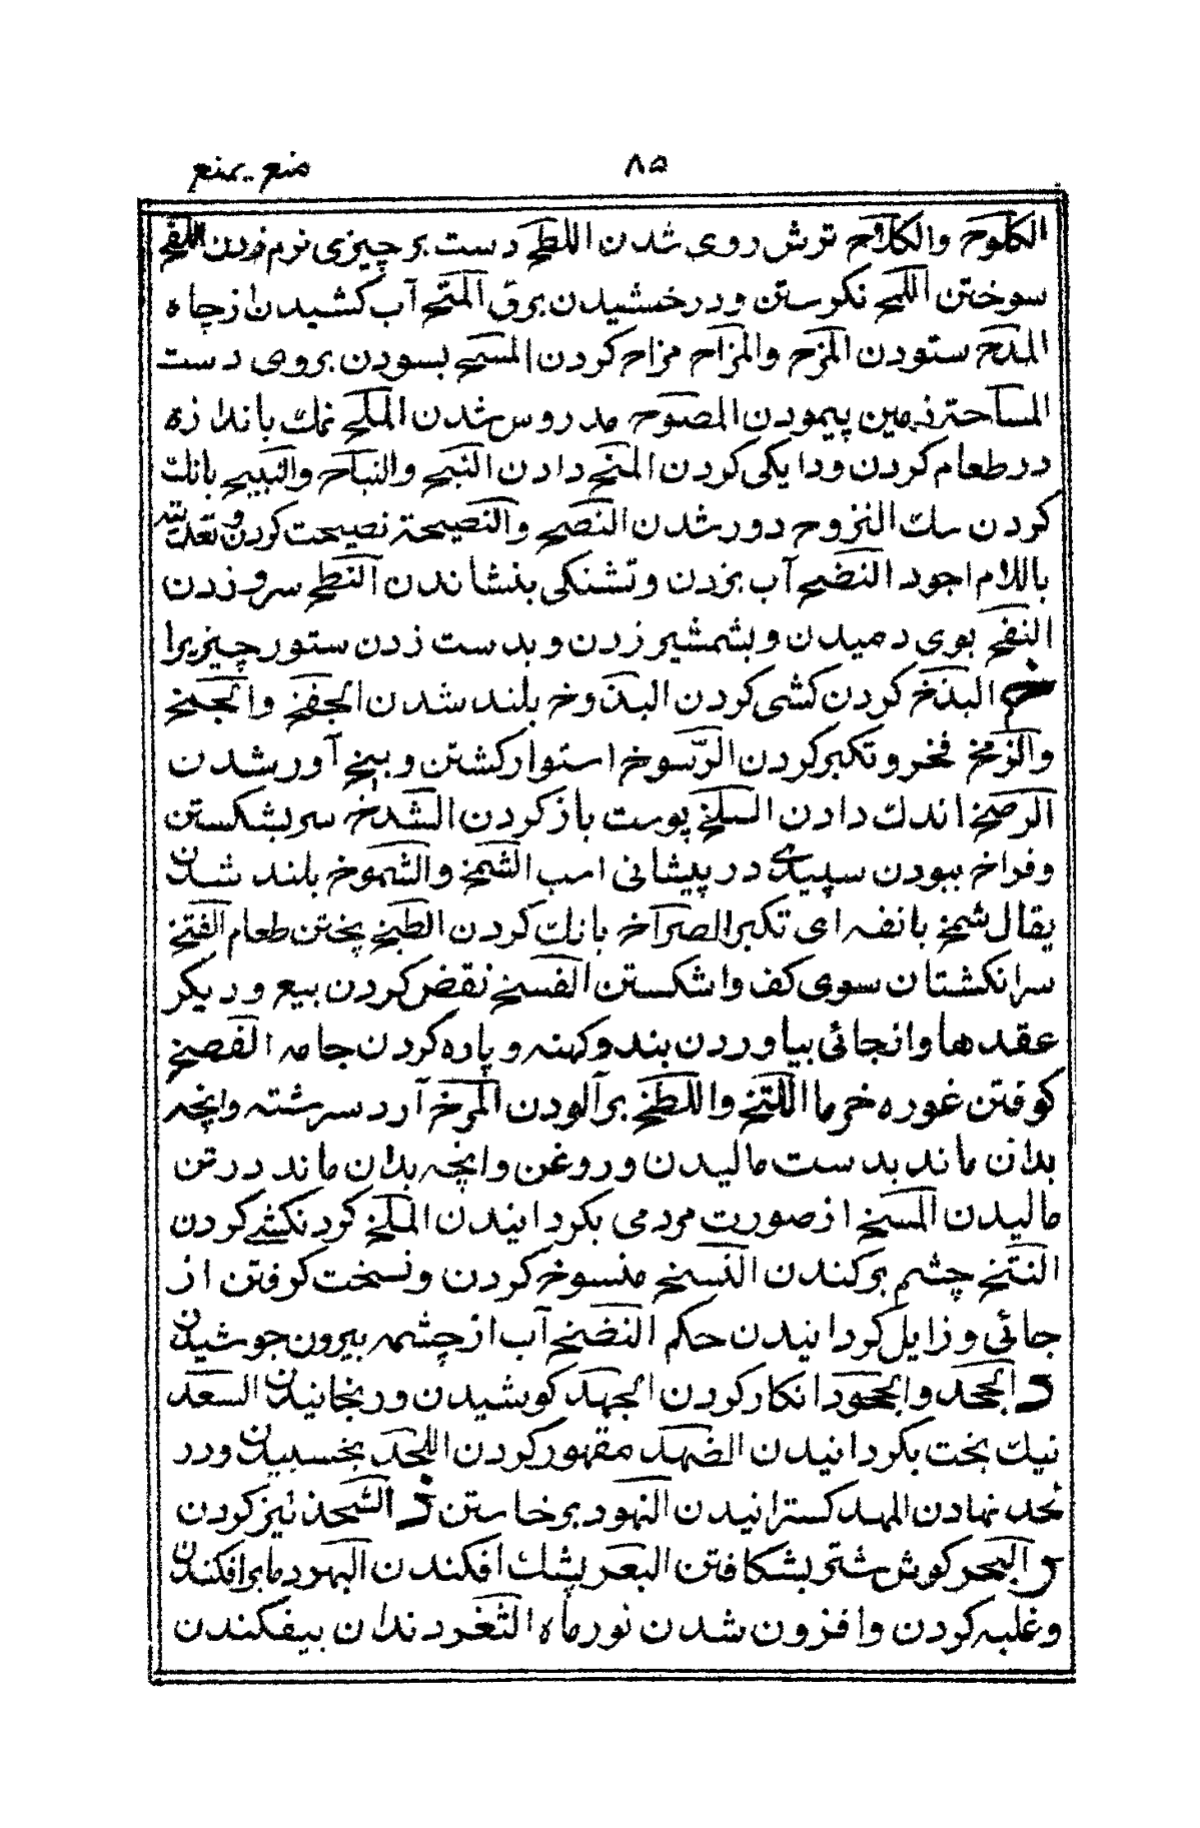 ۸۵ منع ـ یمنع
الکلوح والکلاح ترش روی شدن اللطح دست بر چیزی نرم زدن اللفح
سوختن اللمح نکرستن ودرخشیدن برق المتح آب کشیدن از چاه
المدح ستودن المزح والمزاح مزاح کردن المسح بسودن بروی دست
المساحة زمین پیمودن المصوح مدروس شدن الملح نمك باندازه
در طعام کردن ودایکی کردن المنح دادن النبح والنباح والنبیح بانك
کردن سك النزوح دور شدن النصح والنصیحة نصیحت کردن وتعدیته
باللام اجود النضح آب بزدن وتشنکی بنشاندن النطح سرو زدن
النفح بوی دمیدن وبشمشیر زدن وبدست زدن ستور چیزیرا
خ البذخ کردن کشی کردن البذوخ بلند شدن الجفخ والجمخ
والزمخ فخر وتکبر کردن الرّسوخ استوار کشتن وبیخ آور شدن
الرضخ اندك دادن السلخ پوست باز کردن الشدخ سر بشکستن
وفراخ ببودن سپیدی در پیشانی اسب الشمخ والشموخ بلند شدن
یقال شمخ بانفه ای تکبر الصراخ بانك کردن الطبخ پختن طعام الفتخ
سر انکشتان سوی کف وا شکستن الفسخ نقض کردن بیع ودیکر
عقدها وانجائی بیاوردن بند وکهنه وپاره کردن جامه الفصخ
کوفتن غوره خرما اللتخ واللطخ برآلودن المرخ آرد سرشته وانچه
بدان ماند بدست مالیدن وروغن وانچه بدان ماند در تن
مالیدن المسخ از صورت مردمی بکردانیدن الملخ کردنکشی کردن
النتخ چشم برکندن النسخ منسوخ کردن ونسخت کرفتن از
جائی وزایل کردانیدن حکم النضخ آب از چشمه بیرون جوشیدن
د الجحد والجحود انکار کردن الجهد کوشیدن ورنجانیدن السعد
نیك بخت بکردانیدن الضهد مقهور کردن اللحد بخسبیدن ودر
لحد نهادن المهد کسترانیدن النهود برخاستن ذ الشحذ تیز کردن
ر البحر کوش شتر بشکافتن البعر پشك افکندن البهر دما برافکندن
وغلبه کردن وافزون شدن نور ماه الثغر دندان بیفکندن